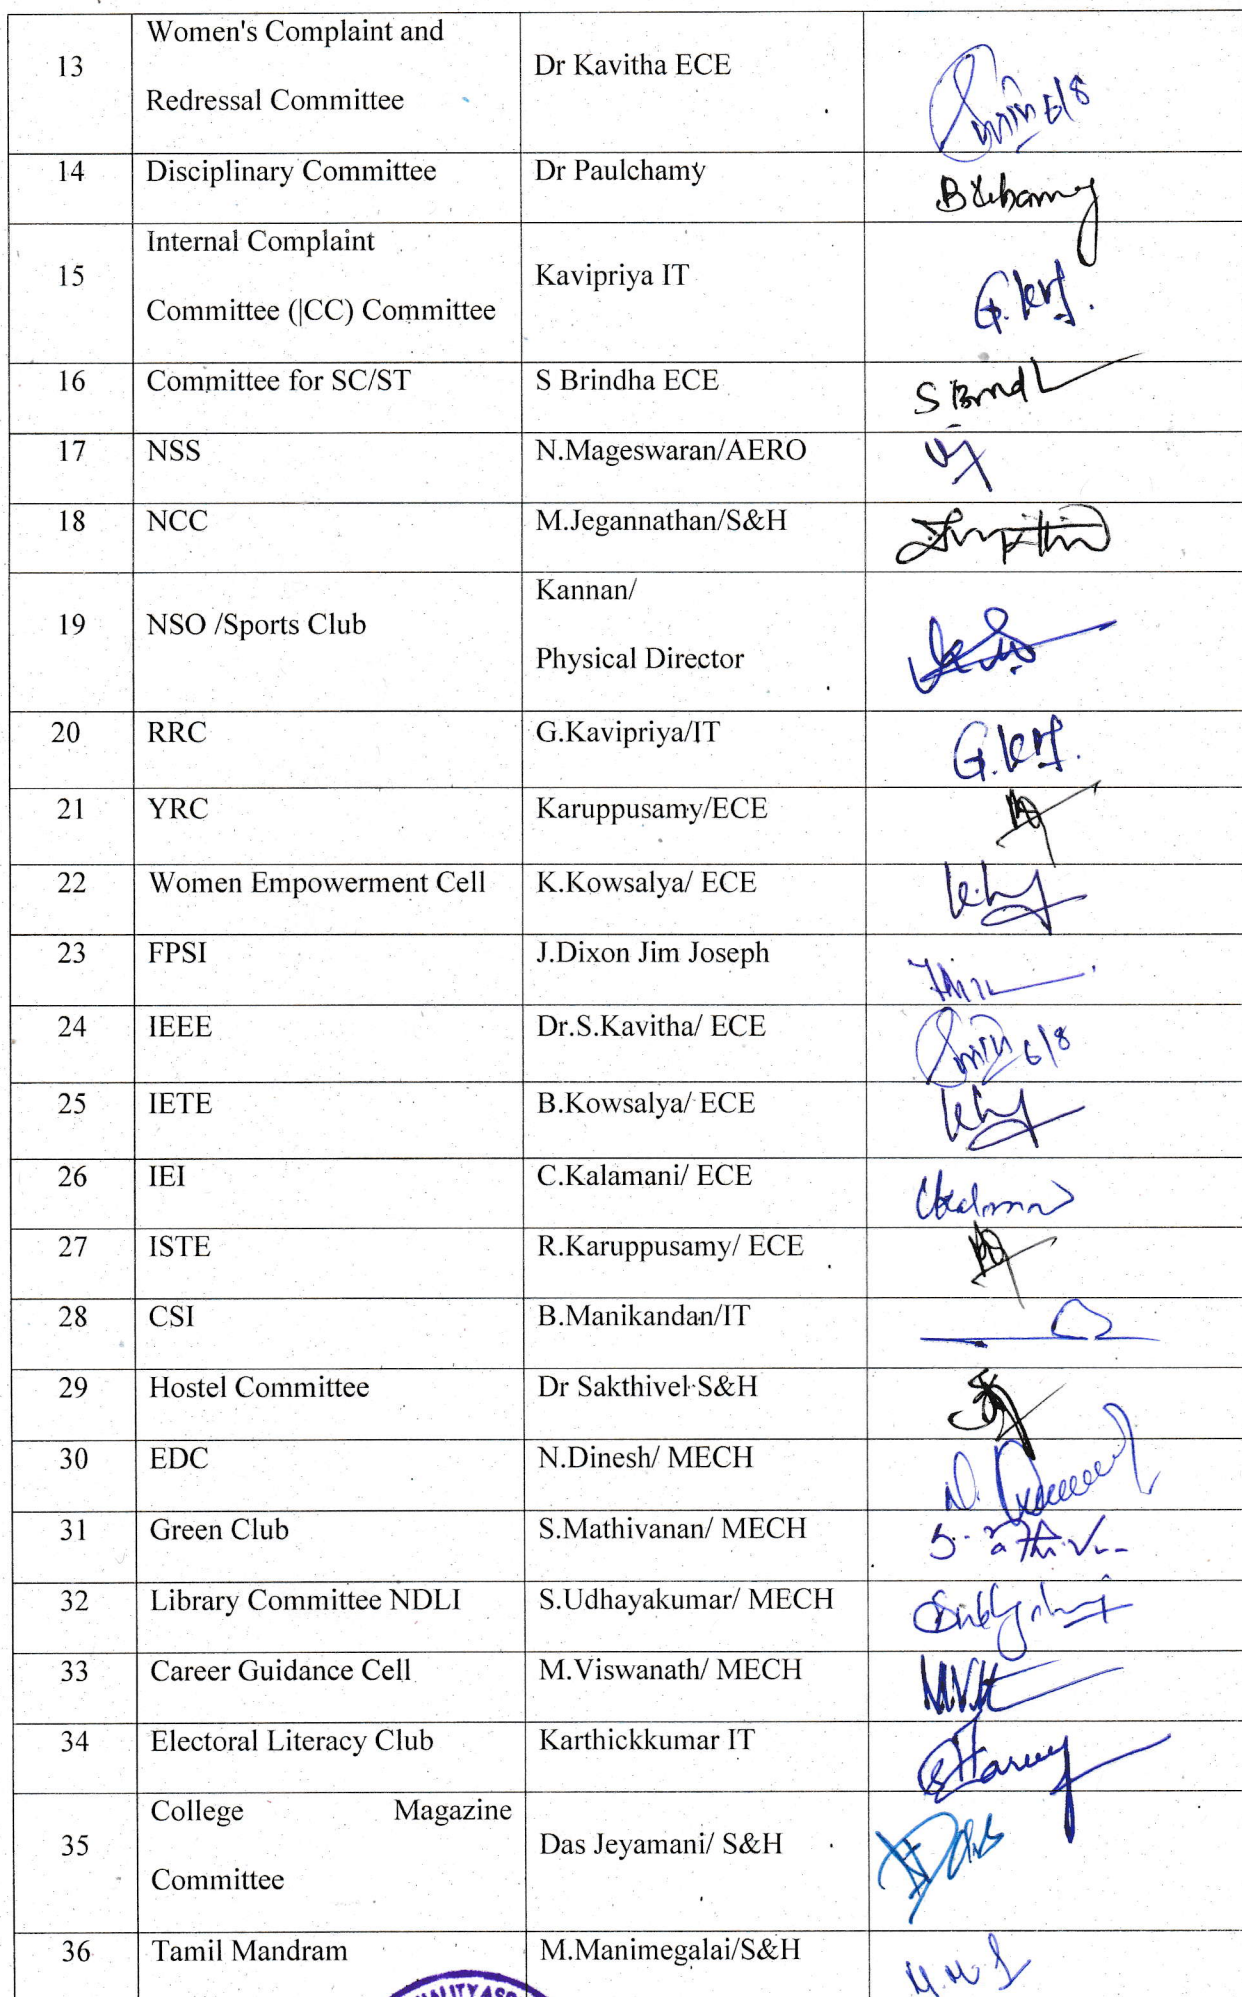 13 Women's Complaint and Redressal Committee Dr Kavitha ECE 6/8
14 Disciplinary Committee Dr Paulchamy
15 Internal Complaint Committee (|CC) Committee Kavipriya IT G.
16 Committee for SC/ST S Brindha ECE
17 NSS N.Mageswaran/AERO
18 NCC M.Jegannathan/S&H
19 NSO /Sports Club Kannan/ Physical Director
20 RRC G.Kavipriya/IT G.
21 YRC Karuppusamy/ECE
22 Women Empowerment Cell K.Kowsalya/ ECE
23 FPSI J.Dixon Jim Joseph
24 IEEE Dr.S.Kavitha/ ECE 6/8
25 IETE B.Kowsalya/ ECE
26 IEI C.Kalamani/ ECE
27 ISTE R.Karuppusamy/ ECE
28 CSI B.Manikandan/IT
29 Hostel Committee Dr Sakthivel S&H
30 EDC N.Dinesh/ MECH
31 Green Club S.Mathivanan/ MECH
32 Library Committee NDLI S.Udhayakumar/ MECH
33 Career Guidance Cell M.Viswanath/ MECH
34 Electoral Literacy Club Karthickkumar IT
35 College Magazine Committee Das Jeyamani/ S&H
36 Tamil Mandram M.Manimegalai/S&H